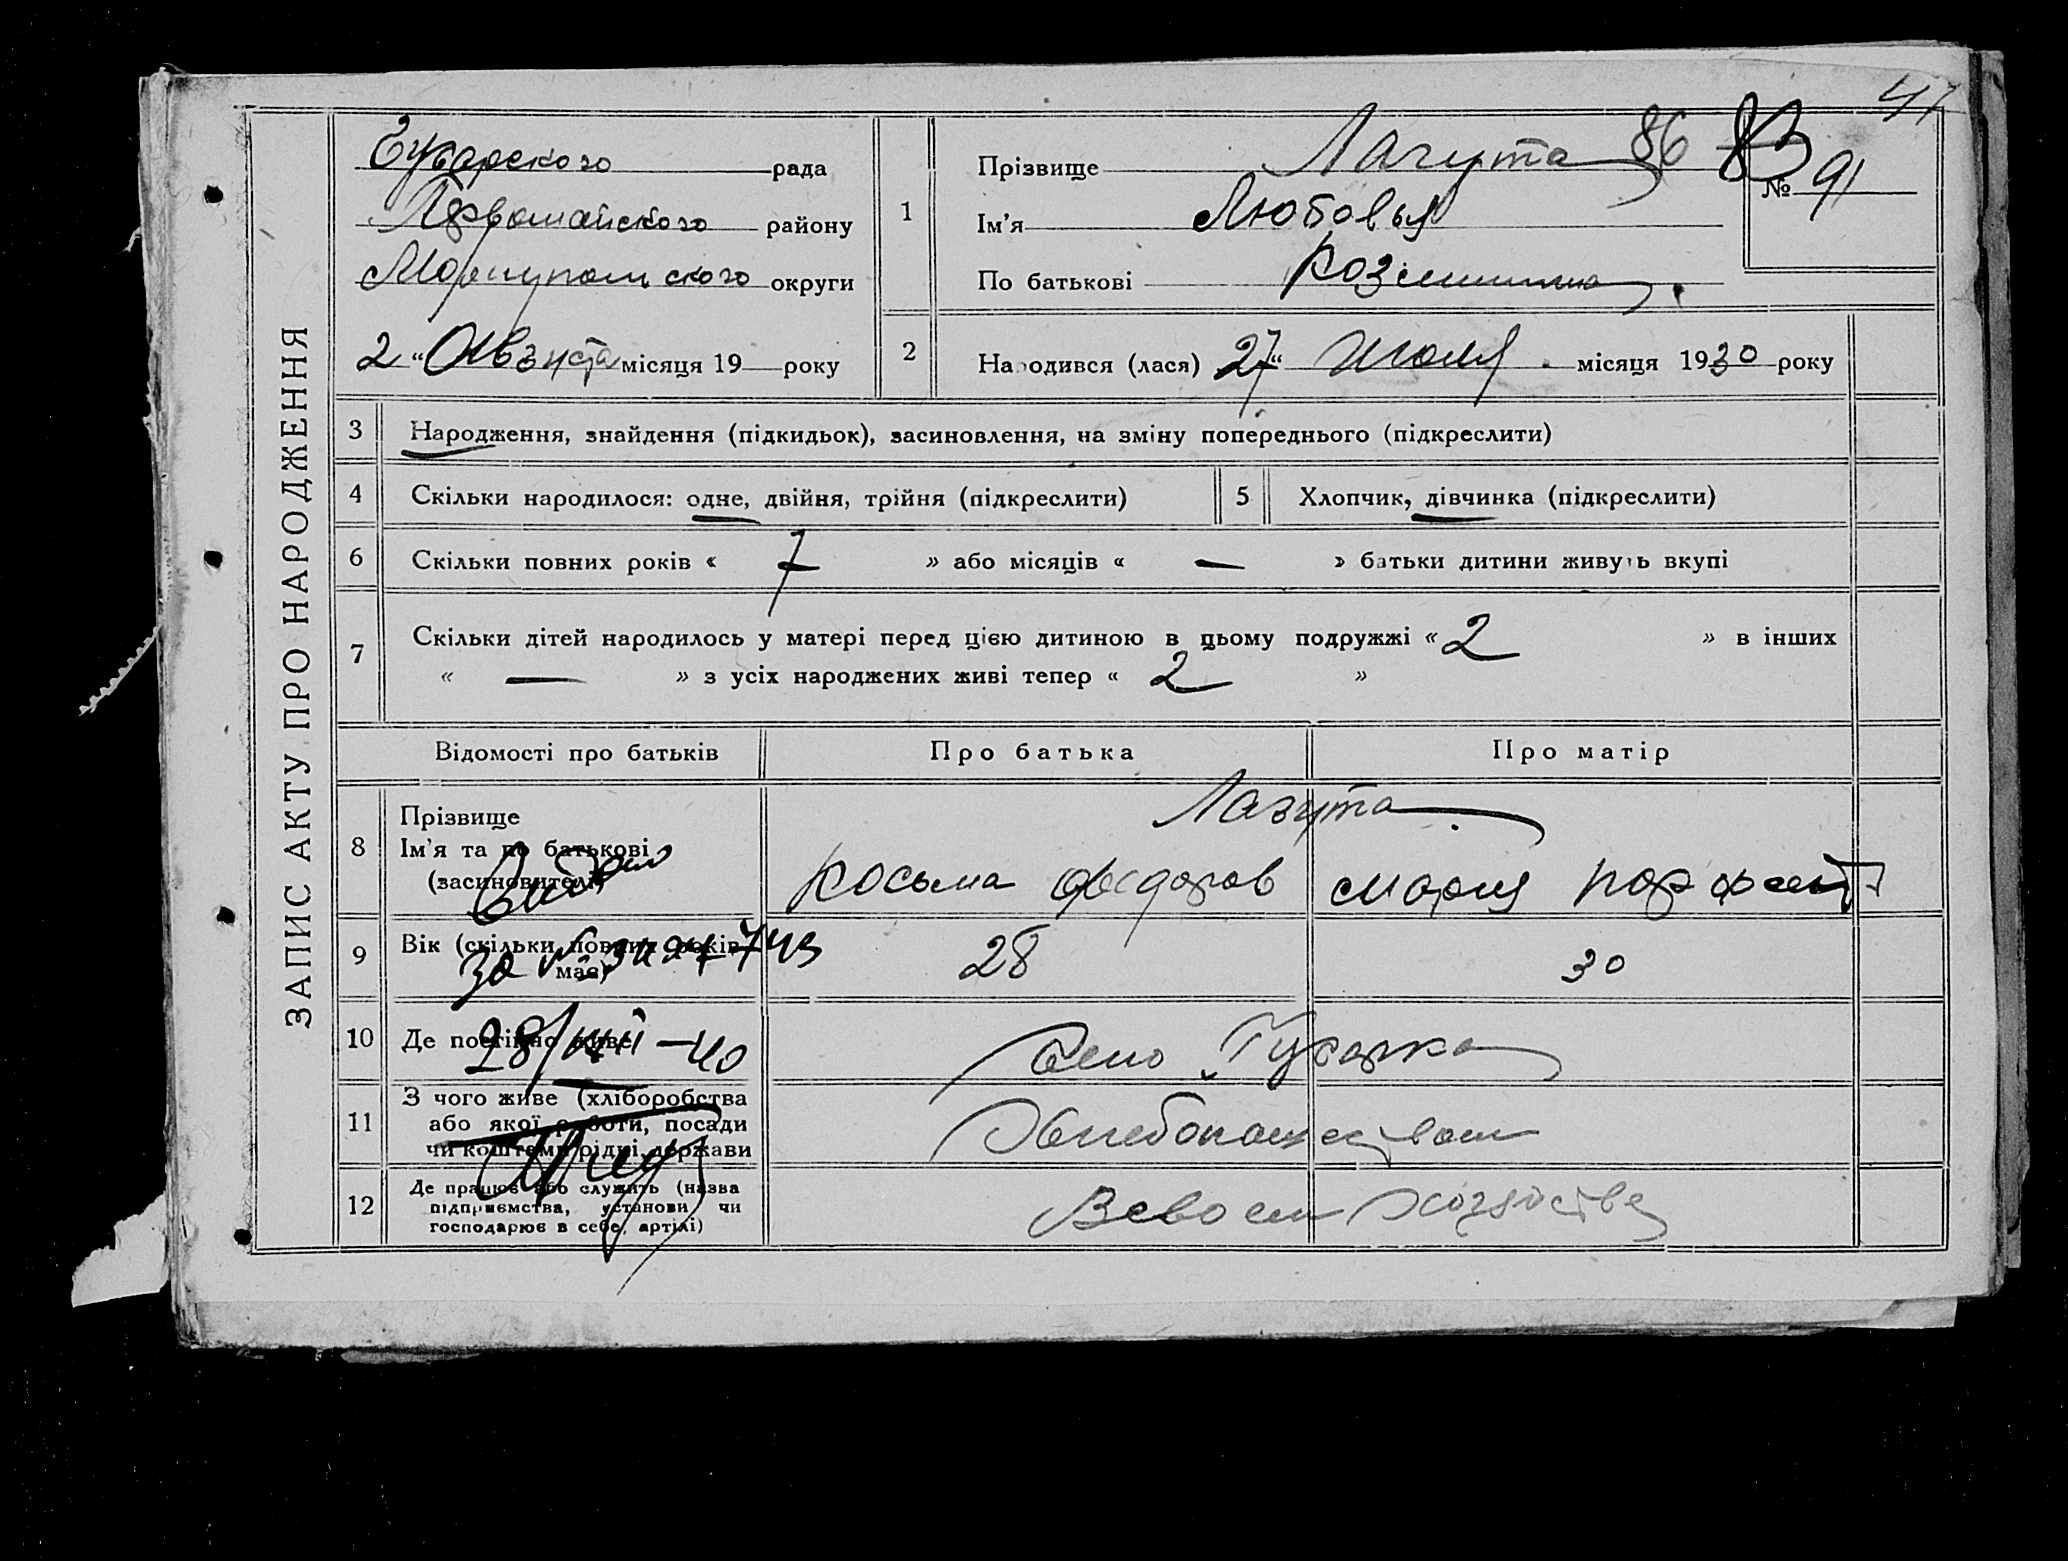 47
ЗАПИС АКТУ ПРО НАРОДЖЕННЯ
рада
Первомайского району
округи
2 “ Августа місяця 19 року
1
Прізвище Лагута 86 83
№ 91
Ім'я Любовья
По батькові
2
Народився (лася) 27 “ июля місяця 1930 року
3
Народження, знайдення (підкидьок), засиновлення, на зміну попереднього (підкреслити)
4
Скільки народилося: одне, двійня, трійня (підкреслити)
5
Хлопчик, дівчинка (підкреслити)
6
Скільки повних років « 7 » або місяців « — » батьки дитини живуть вкупі
7
Скільки дітей народилось у матері перед цією дитиною в цьому подружжі « 2 » в інших
« — » з усіх народжених живі тепер « 2 »
Відомості про батьків
Про батька
Про матір
8
Прізвище
Ім'я та по батькові
(засиновителі)
Лагута
Косьма Федоров
Мария
9
Вік (скільки повних років
має)
28
30
10
Де постійно живе
28/XII-40
Село Гусарка
11
З чого живе (хліборобства
або якої роботи, посади
чи коштами рідні, держави
Хлебопашеством
12
Де працює або служить (назва
підприємства, установи чи
господарює в себе, артілі)
В своем хозяйстве